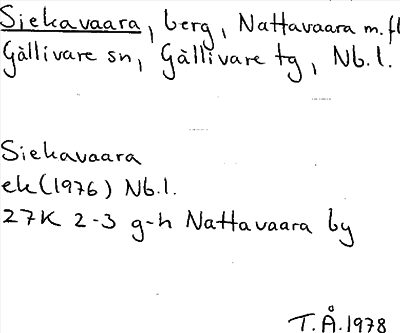 Siekavaara, berg, Nattavaara m.fl
Gällivare sn, Gällivare tg, Nb.l.
Siekavaara
ek (1976) Nb.l.
27K 2-3 g-h Nattavaara by
T.Å. 1978